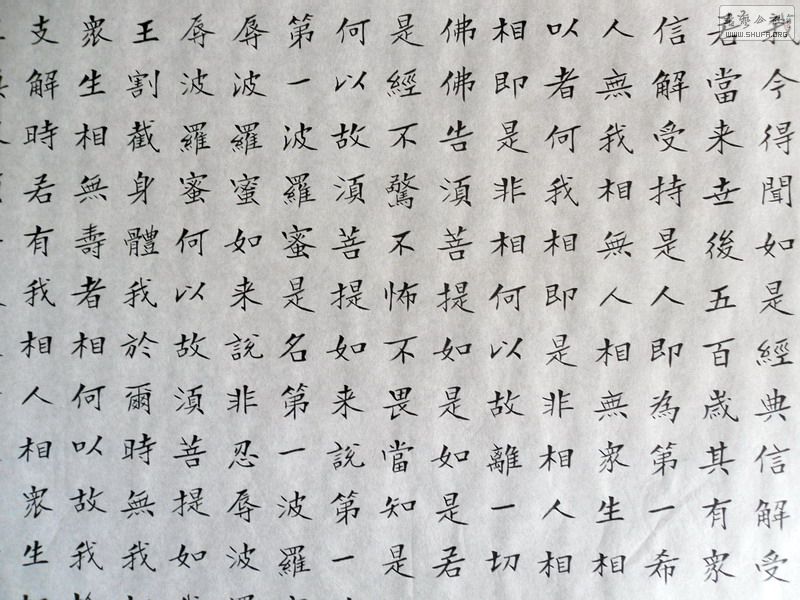 我今得聞如是經典信解受
若當来世後五百歲其有眾
信解受持是人即為第一希
人無我相無人相無眾生相
以者何我相即是非相人相
相即是非相何以故離一切
佛佛告須菩提如是如是若
是經不驚不怖不畏當知是
何以故須菩提如来說第一
第一波羅蜜是名第一波羅
辱波羅蜜如来說非忍辱波
辱波羅蜜何以故須菩提如
王割截身體我於爾時無我
眾生相無壽者相何以故我
支解時若有我相人相眾生
WWW.SHUFA.ORG